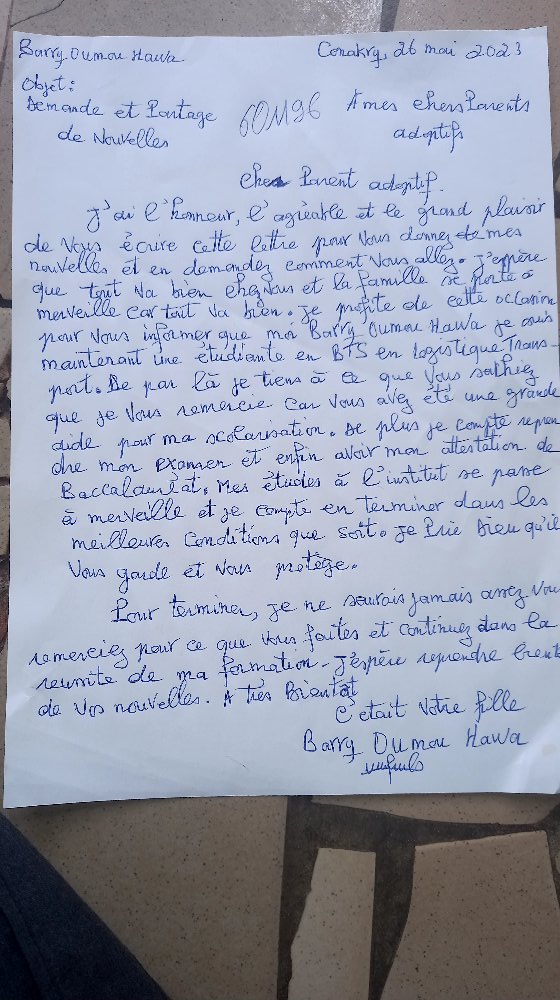 Barry Oumou Hawa
Conakry, 26 mai 2023
Objet:
Demande et Partage
de Nouvelles
60M96
A mes chers Parents
adoptifs
Cher Parent adoptif.
J'ai l'honneur, l'agréable et le grand plaisir
de Vous écrire cette lettre pour Vous donnez de mes
nouvelles et en demandez comment Vous allez. J'espère
que tout Va bien chez Vous et la famille se porte à
merveille car tout Va bien. Je profite de cette occasion
pour Vous informer que moi Barry Oumou Hawa je suis
maintenant une étudiante en BTS en logistique Trans-
port. De par là je tiens à ce que Vous sachiez
que je Vous remercie car Vous avez été une grande
aide pour ma scolarisation. De plus je compte repren
dre mon examen et enfin avoir mon attestation de
Baccalauréat. Mes études à l'institut se passe
à merveille et je compte en terminer dans les
meilleures Conditions que soit. Je Prie Dieu qu'il
Vous garde et Vous protège.
Pour terminer, je ne saurais jamais assez Vous
remerciez pour ce que Vous faites et continuez dans la
réussite de ma formation. J'espère reprendre
de Vos nouvelles. A Très Bientôt
C'était Votre fille
Barry Oumou Hawa